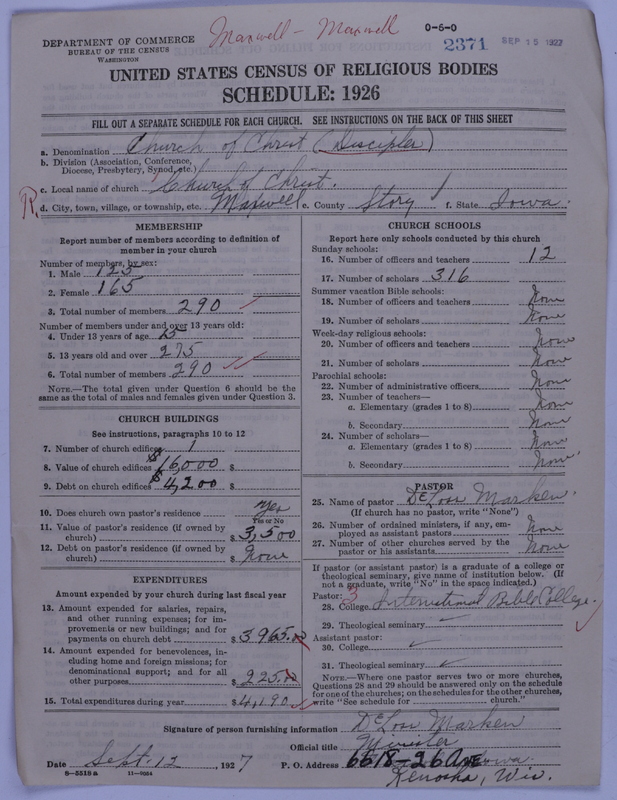 Maxwell - Maxwell
0-6-0
DEPARTMENT OF COMMERCE
BUREAU OF THE CENSUS
WASHINGTON
2371
SEP 15 1927
UNITED STATES CENSUS OF RELIGIOUS BODIES
SCHEDULE: 1926
FILL OUT A SEPARATE SCHEDULE FOR EACH CHURCH. SEE INSTRUCTIONS ON THE BACK OF THIS SHEET
a. Denomination Church of Christ (Disciples)
b. Division (Association, Conference,
Diocese, Presbytery, Synod, etc.)
c. Local name of church Church of Christ.
d. City, town, village, or township, etc. Maxwell e. County Story f. State Iowa.
MEMBERSHIP
Report number of members according to definition of
member in your church
Number of members, by sex:
1. Male 125
2. Female 165
3. Total number of members 290
Number of members under and over 13 years old:
4. Under 13 years of age 15
5. 13 years old and over 275
6. Total number of members 290
NOTE.—The total given under Question 6 should be
same as the total of males and females given under Question 3.
CHURCH BUILDINGS
See instructions, paragraphs 10 to 12
7. Number of church edifices 1
8. Value of church edifices $16,000 $
9. Debt on church edifices $4,200 $
10. Does church own pastor's residence Yes
Yes or No
11. Value of pastor's residence (if owned by
church) $3,500
12. Debt on pastor's residence (if owned by
church) $ None
EXPENDITURES
Amount expended by your church during last fiscal year
13. Amount expended for salaries, repairs,
and other running expenses; for im-
provements or new buildings; and for
payments on church debt $3965.00
14. Amount expended for benevolences, in-
cluding home and foreign missions; for
denominational support; and for all
other purposes $225.00
15. Total expenditures during year $4,190
CHURCH SCHOOLS
Report here only schools conducted by this church
Sunday schools:
16. Number of officers and teachers 12
17. Number of scholars 316
Summer vacation Bible schools:
18. Number of officers and teachers None
19. Number of scholars None
Week-day religious schools:
20. Number of officers and teachers None
21. Number of scholars None
Parochial schools:
22. Number of administrative officers None
23. Number of teachers—
a. Elementary (grades 1 to 8) None
b. Secondary None
24. Number of scholars—
a. Elementary (grades 1 to 8) None
b. Secondary None
PASTOR
25. Name of pastor DeLoss Marken.
(If church has no pastor, write "None")
26. Number of ordained ministers, if any, em-
ployed as assistant pastors None
27. Number of other churches served by the
pastor or his assistants None
If pastor (or assistant pastor) is a graduate of a college or
theological seminary, give name of institution below. (If
not a graduate, write "No" in the space indicated.)
Pastor: 3
28. College International Bible College.
29. Theological seminary
Assistant pastor:
30. College
31. Theological seminary
NOTE.—Where one pastor serves two or more churches,
Questions 28 and 29 should be answered only on the schedule
for one of the churches; on the schedules for the other churches,
write "See schedule for church."
Signature of person furnishing information DeLoss Marken
Official title Minister
Date Sept. 12, 1927 P. O. Address 6618-26 AVE
Kenosha, Wis.
8-5518 a 11-9034